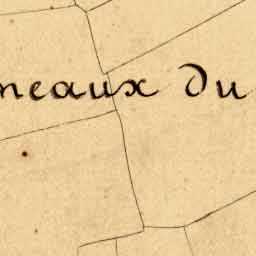 meaux du